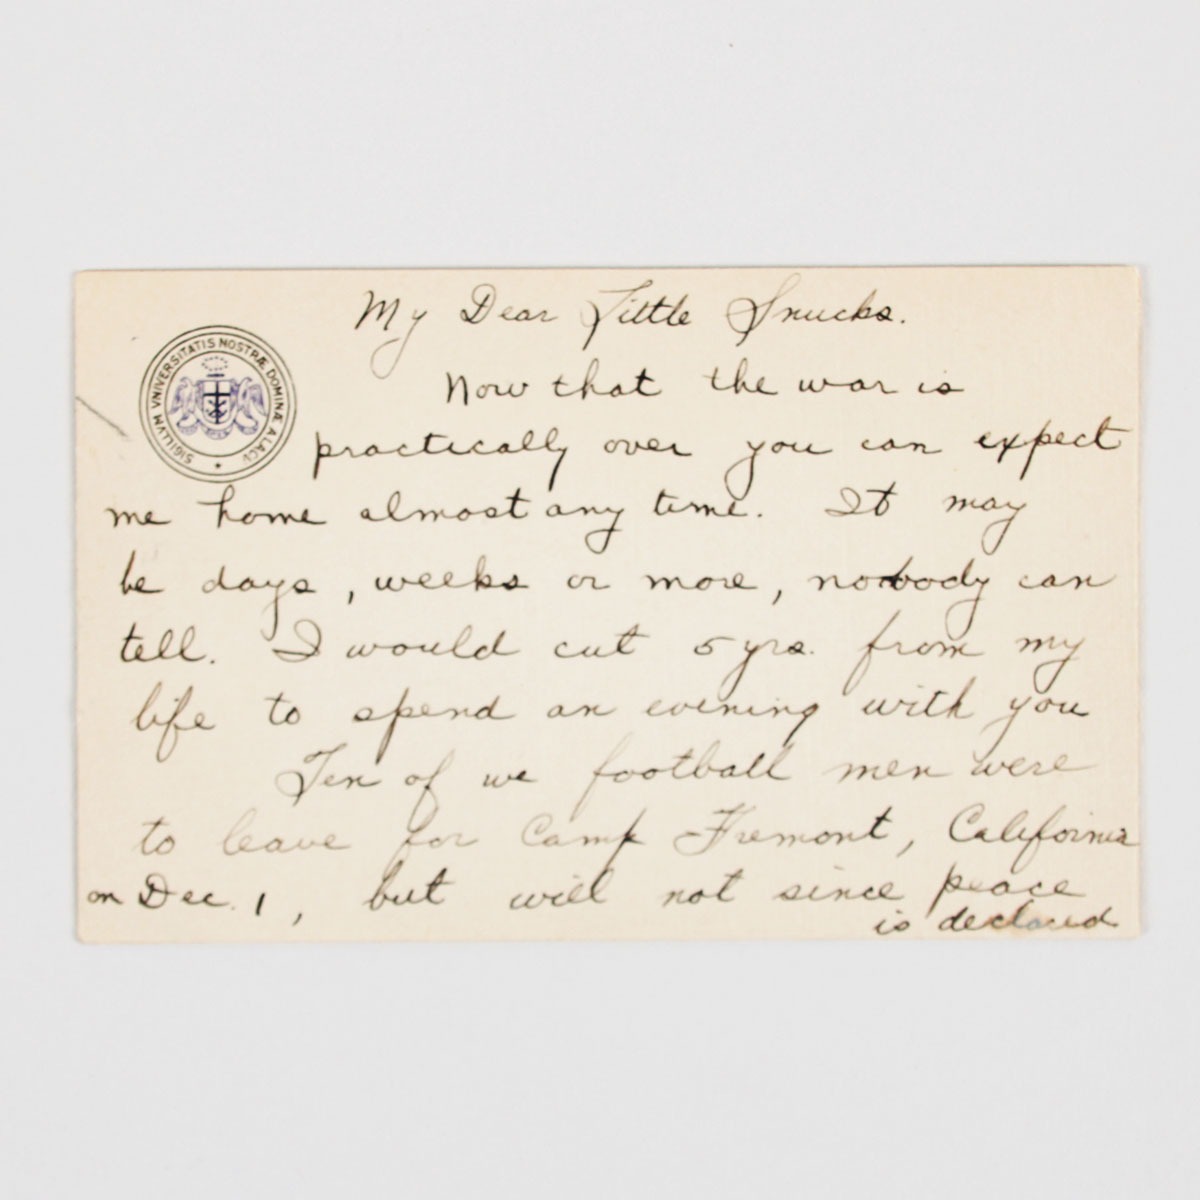 My Dear Little Snucks.
Now that the war is
practically over you can expect
me home almost any time. It may
be days, weeks or more, nobody can
tell. I would cut 5 yrs. from my
life to spend an evening with you
Ten of we football men were
to leave for Camp Fremont, California
on Dec. 1, but will not since peace
is declared
SIGILLVM VNIVERSITATIS NOSTRÆ DOMINÆ A LACV